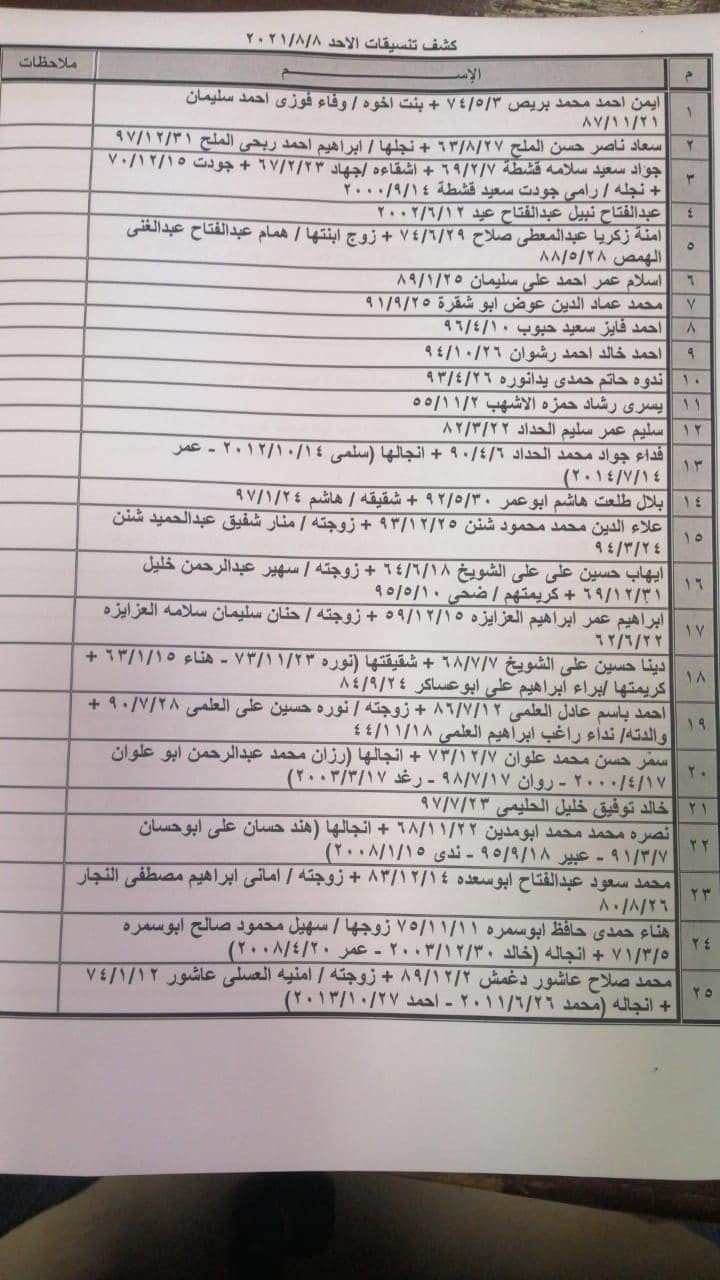 كشف تنسيقات الاحد ٢٠٢١/٨/٨
م الإســـــــــم ملاحظات
١ ايمن احمد محمد بريص ٧٤/٥/٣ + بنت اخوه / وفاء فوزى احمد سليمان
٨٧/١١/٢١
٢ سعاد ناصر حسن الملح ٦٣/٨/٢٧ + نجلها / ابراهيم احمد ربحى الملح ٩٧/١٢/٣١
٣ جواد سعيد سلامه قشطة ٦٩/٢/٧ + اشقاءه /جهاد ٦٧/٢/٢٣ + جودت ٧٠/١٢/١٥
+ نجله / رامي جودت سعيد قشطة ٢٠٠٠/٩/١٤
٤ عبدالفتاح نبيل عبدالفتاح عيد ٢٠٠٢/٦/١٢
٥ امنة زكريا عبدالمعطى صلاح ٧٤/٦/٢٩ + زوج ابنتها / همام عبدالفتاح عبدالغنى
الهمص ٨٨/٥/٢٨
٦ اسلام عمر احمد على سليمان ٨٩/١/٢٥
٧ محمد عماد الدين عوض ابو شقرة ٩١/٩/٢٥
٨ احمد فايز سعيد حبوب ٩٦/٤/١٠
٩ احمد خالد احمد رشوان ٩٤/١٠/٢٦
١٠ ندوه حاتم حمدى يدانوره ٩٣/٤/٢٦
١١ يسرى رشاد حمزه الاشهب ٥٥/١١/٢
١٢ سليم عمر سليم الحداد ٨٢/٣/٢٢
١٣ فداء جواد محمد الحداد ٩٠/٤/٦ + انجالها (سلمى ٢٠١٢/١٠/١٤ - عمر
٢٠١٤/٧/١٤)
١٤ بلال طلعت هاشم ابوعمر ٩٢/٥/٣٠ + شقيقه / هاشم ٩٧/١/٢٤
١٥ علاء الدين محمد محمود شنن ٩٣/١٢/٢٥ + زوجته / منار شفيق عبدالحميد شنن
٩٤/٣/٢٤
١٦ ايهاب حسين على على الشويخ ٦٤/٦/١٨ + زوجته / سهير عبدالرحمن خليل
٦٩/١٢/٣١ + كريمتهم / ضحى ٩٥/٥/١٠
١٧ ابراهيم عمر ابراهيم العزايزه ٥٩/١٢/١٥ + زوجته / حنان سليمان سلامه العزايزه
٦٢/٦/٢٢
١٨ دينا حسين على الشويخ ٦٨/٧/٧ + شقيقتها (نوره ٧٣/١١/٢٣ - هناء ٦٣/١/١٥ +
كريمتها /براء ابراهيم علي ابوعساكر ٨٤/٩/٢٤
١٩ احمد باسم عادل العلمى ٨٦/٧/١٢ + زوجته / نوره حسين على العلمى ٩٠/٧/٢٨ +
والدته/ نداء راغب ابراهيم العلمي ٤٤/١١/١٨
٢٠ سمر حسن محمد علوان ٧٣/١٢/٧ + انجالها (رزان محمد عبدالرحمن ابو علوان
٢٠٠٠/٤/١٧ - روان ٩٨/٧/١٧ - رغد ٢٠٠٣/٣/١٧)
٢١ خالد توفيق خليل الحليمى ٩٧/٧/٢٣
٢٢ نصره محمد محمد ابومدين ٦٨/١١/٢٢ + انجالها (هند حسان على ابوحسان
٩١/٣/٧ - عبير ٩٥/٩/١٨ - ندى ٢٠٠٨/١/١٥)
٢٣ محمد سعود عبدالفتاح ابوسعده ٨٣/١٢/١٤ + زوجته / امانى ابراهيم مصطفى النجار
٨٠/٨/٢٦
٢٤ هناء حمدى حافظ ابوسمره ٧٥/١١/١١ زوجها / سهيل محمود صالح ابوسمره
٧١/٣/٥ + انجاله (خالد ٢٠٠٣/١٢/٣٠ - عمر ٢٠٠٨/٤/٢٠)
٢٥ محمد صلاح عاشور دغمش ٨٩/١٢/٢ + زوجته / امنيه العسلى عاشور ٧٤/١/١٢
+ انجاله (محمد ٢٠١١/٦/٢٦ - احمد ٢٠١٣/١٠/٢٧)